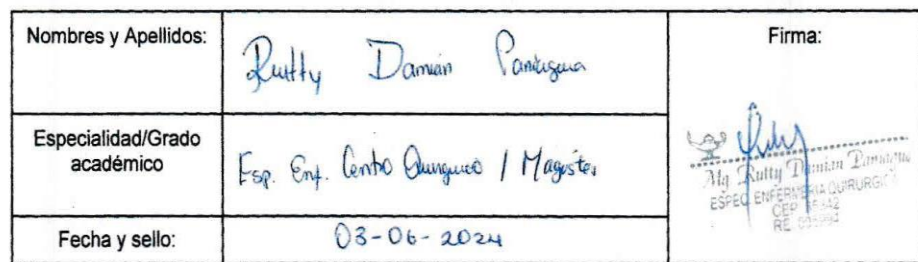 Nombres y Apellidos:
Rutty Damián Paniagua
Firma:
Especialidad/Grado
académico
Esp. Enf. Centro Quirurgico / Magister
Mg Rutty Damian Paniagua
ESPEC. ENFERMERIA QUIRURGICA
CEP
RE
Fecha y sello:
03-06-2024